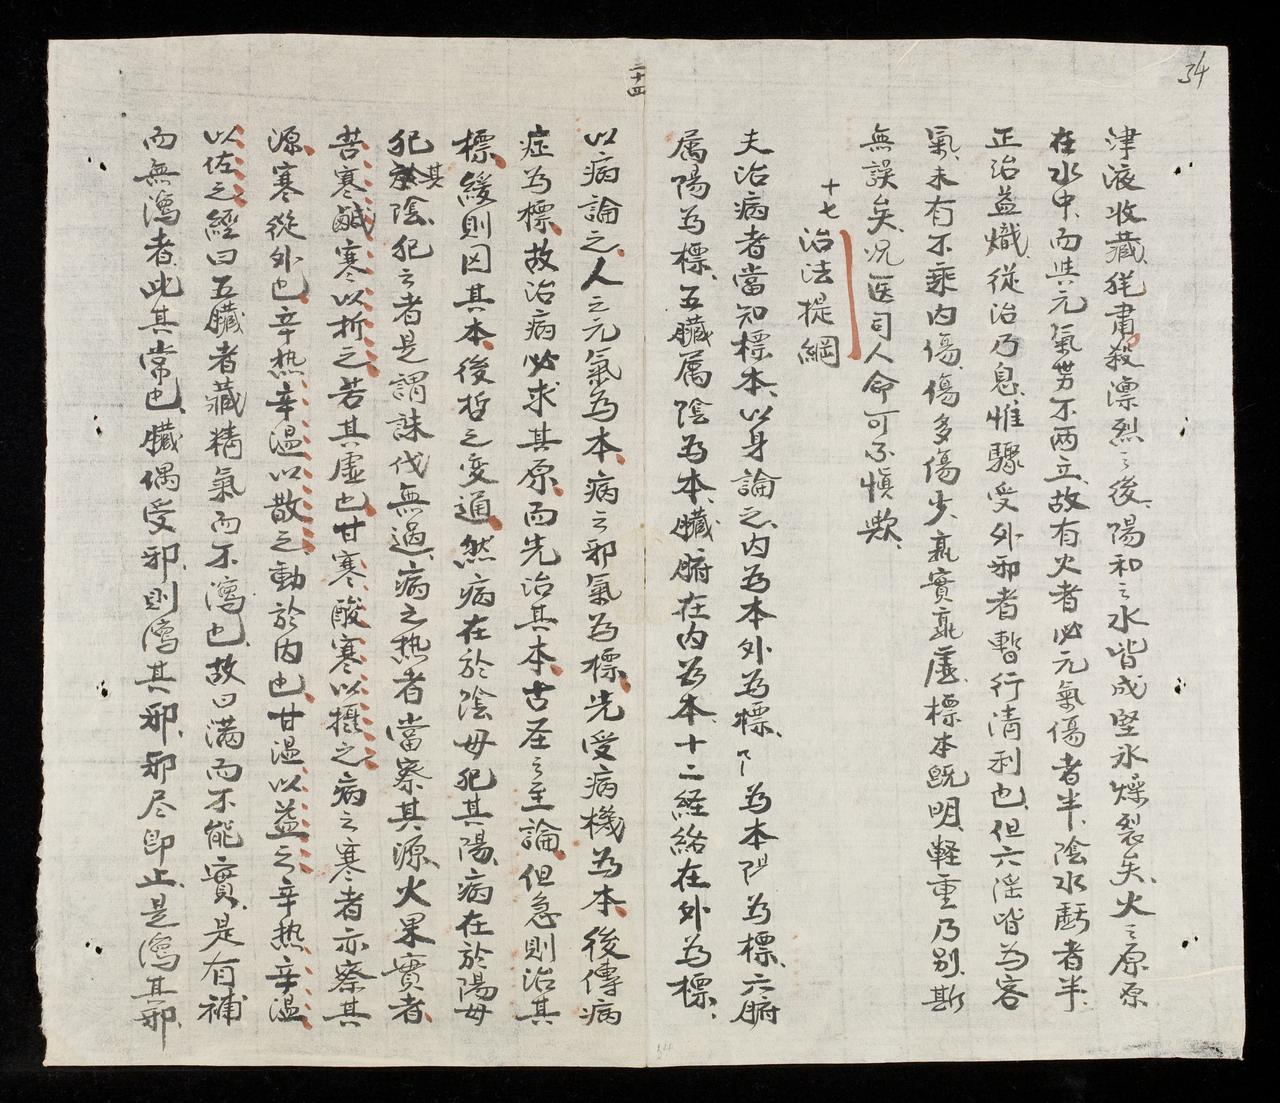 34
三十四
津液收藏從肅殺漂烈之後陽和之水皆成堅氷燥裂矣火之原原
在水中而与元氣势不两立故有火者必元氣傷者半陰水虧者半
正治益熾從治乃息惟驟受外邪者暫行清利也但六淫皆為客
氣未有不乘内傷傷多傷少孰實孰虛標本既明軽重乃别斯
無誤矣况医司人命可不慎欤
十七治法提綱
夫治病者當知標本以身論之内為本外為標阝為本阻為標六腑
属陽為標五臓属陰為本臓腑在内為本十二経絡在外為標
以病論之人之元氣為本病之邪氣為標先受病機為本後傳病
症為標故治病必求其原而先治其本古圣之至論但急則治其
標緩則因其本後哲之变通然病在於陰毋犯其陽病在於陽毋
犯其陰犯之者是謂誅伐無過病之热者當察其源火果實者
苦寒鹹寒以折之若其虛也甘寒酸寒以摄之病之寒者亦察其
源寒從外也辛热辛温以散之動於内也甘温以益之辛热辛温
以佐之經曰五臓者藏精氣而不瀉也故曰满而不能實是有補
而無瀉者此其常也臓偶受邪則瀉其邪邪尽即止是瀉其邪